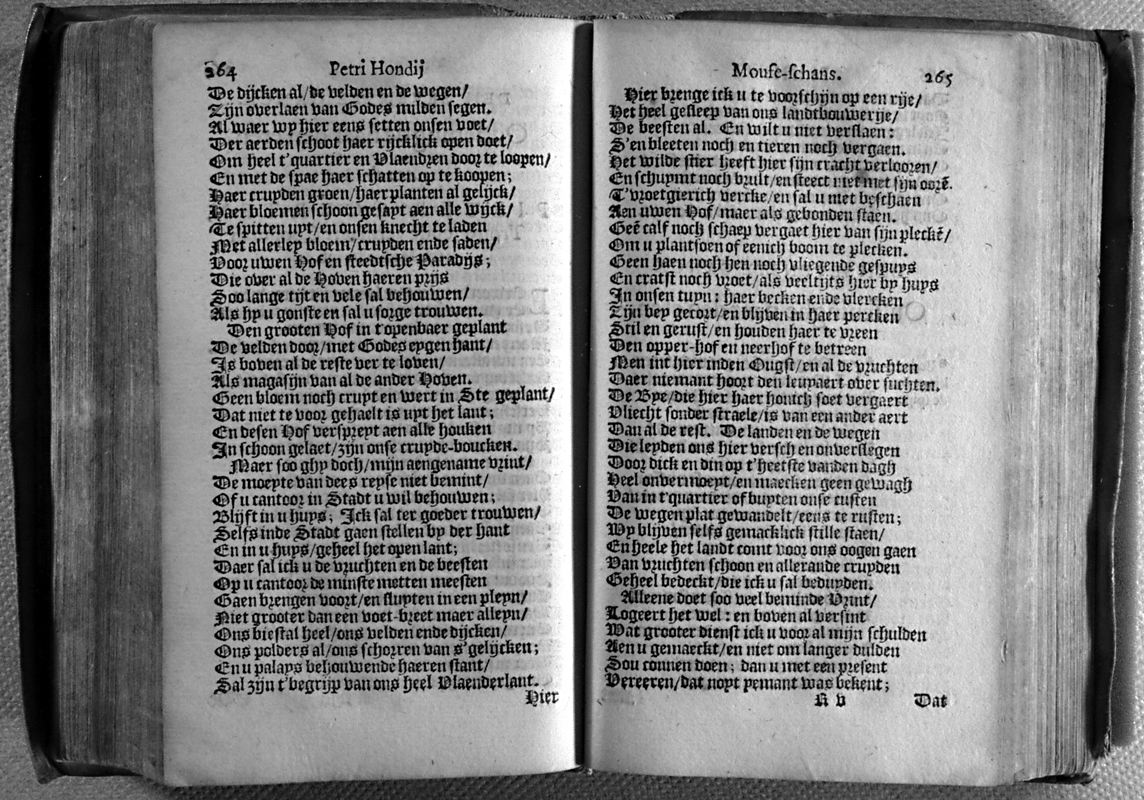 264
Petri Hondij
De dijcken al/de velden en de wegen/
Zijn overlaen van Godes milden segen.
Al waer wy hier eens setten onsen voet/
Der aerden schoot haer rijcklick open doet/
Om heel t'quartier en Vlaendren door te loopen/
En met de spae haer schatten op te koopen;
Haer cruyden groen/haer planten al gelijck/
Haer bloemen schoon gesayt aen alle wijck/
Te spitten uyt/en onsen knecht te laden
Met allerley bloem/cruyden ende saden/
Voor uwen Hof en steedtsche Paradijs;
Die over al de Hoven haeren prijs
Soo lange tijt en vele sal behouwen/
Als hy u gonste en sal u sorge trouwen.
Den grooten Hof in t'openbaer geplant
De velden door/met Godes eygen hant/
Is boven al de reste ver te loven/
Als magasijn van al de ander Hoven.
Geen bloem noch cruyt en wert in Ste geplant/
Dat niet te voor gehaelt is uyt het lant;
En desen Hof verspreyt aen alle houken
In schoon gelaet/zijn onse cruyde-boucken.
Maer soo ghy doch/mijn aengename vrint/
De moeyte van dees reyse niet bemint/
Of u cantoor in Stadt u wil behouwen;
Blijft in u huys; Ick sal ter goeder trouwen/
Selfs inde Stadt gaen stellen by der hant
En in u huys/geheel het open lant;
Daer sal ick u de vruchten en de beesten
Op u cantoor de minste metten meesten
Gaen brengen voort/en sluyten in een pleyn/
Niet grooter dan een voet-breet maer alleyn/
Ons biestal heel/ons velden ende dijcken/
Ons polders al/ons schorren van s'gelijcken;
En u palays behouwende haeren stant/
Sal zijn t'begrijp van ons heel Vlaenderlant.
Hier
Mouse-schans.
265
Hier brenge ick u te voorschijn op een rije/
Het heel gesleep van ons landtbouwerije/
De beesten al. En wilt u niet verslaen:
S'en bleeten noch en tieren noch vergaen.
Het wilde stier heeft hier sijn cracht verlooren/
En schuymt noch brult/en steect niet met sijn oorē.
T'vroetgierich vercke/en sal u niet beschaen
Aen uwen Hof/maer als gebonden staen.
Geē calf noch schaep vergaet hier van sijn pleckē/
Om u plantsoen of eenich boom te plecken.
Geen haen noch hen noch vliegende gespuys
En cratst noch vroet/als veeltijts hier by huys
In onsen tuyn: haer becken ende vlercken
Zijn bey gecort/en blijven in haer percken
Stil en gerust/en houden haer te vreen
Den opper-hof en neerhof te betreen
Men int hier inden Ougst/en al de vruchten
Daer niemant hoort den leuyaert over suchten.
De Bye/die hier haer honich soet vergaert
Vliecht sonder straele/is van een ander aert
Dan al de rest. De landen en de wegen
Die leyden ons hier versch en onverslegen
Door dick en din op t'heetste vanden dagh
Heel onvermoeyt/en maecken geen gewagh
Van in t'quartier of buyten onse custen
De wegen plat gewandelt/eens te rusten;
Wy blijven selfs gemacklick stille staen/
En heele het landt comt voor ons oogen gaen
Van vruchten schoon en allerande cruyden
Geheel bedeckt/die ick u sal beduyden.
Alleene doet soo veel beminde Vrint/
Logeert het wel: en boven al versint
Wat grooter dienst ick u voor al mijn schulden
Aen u gemaeckt/en niet om langer dulden
Sou connen doen; dan u met een present
Vereeren/dat noyt yemant was bekent;
R v
Dat